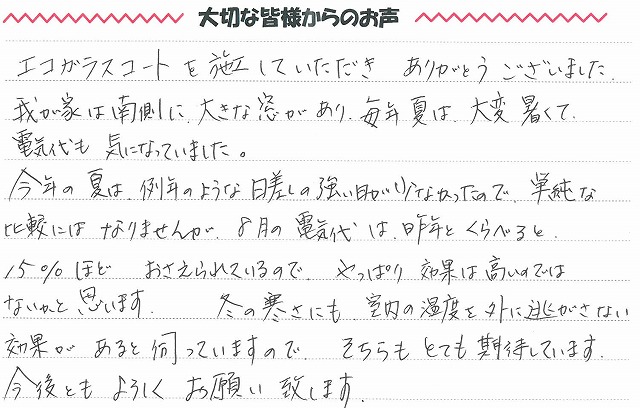 大切な皆様からのお声
エコガラスコートを施工していただき ありがとうございました.
我が家は南側に大きな窓があり、毎年夏は、大変暑くて、
電気代も 気になっていました。
今年の夏は、例年のような日差しの強い日が少なかったので、単純な
比較にはなりませんが、8月の電気代は、昨年とくらべると、
15%ほど おさえられているので、やっぱり効果は高いのでは
ないかと思います. 冬の寒さにも、室内の温度を外に逃がさない
効果があると伺っていますので、そちらもとても期待しています.
今後ともよろしくお願い致します.